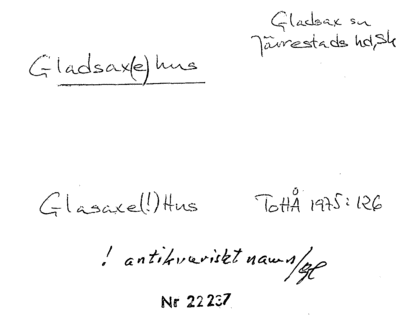 Gladsax(e)hus
Gladsax sn
Järrestads hd, Sk
Glasaxe(!)Hus
ToHÅ 1975:126
! antikvariskt namn/gl
Nr 22237